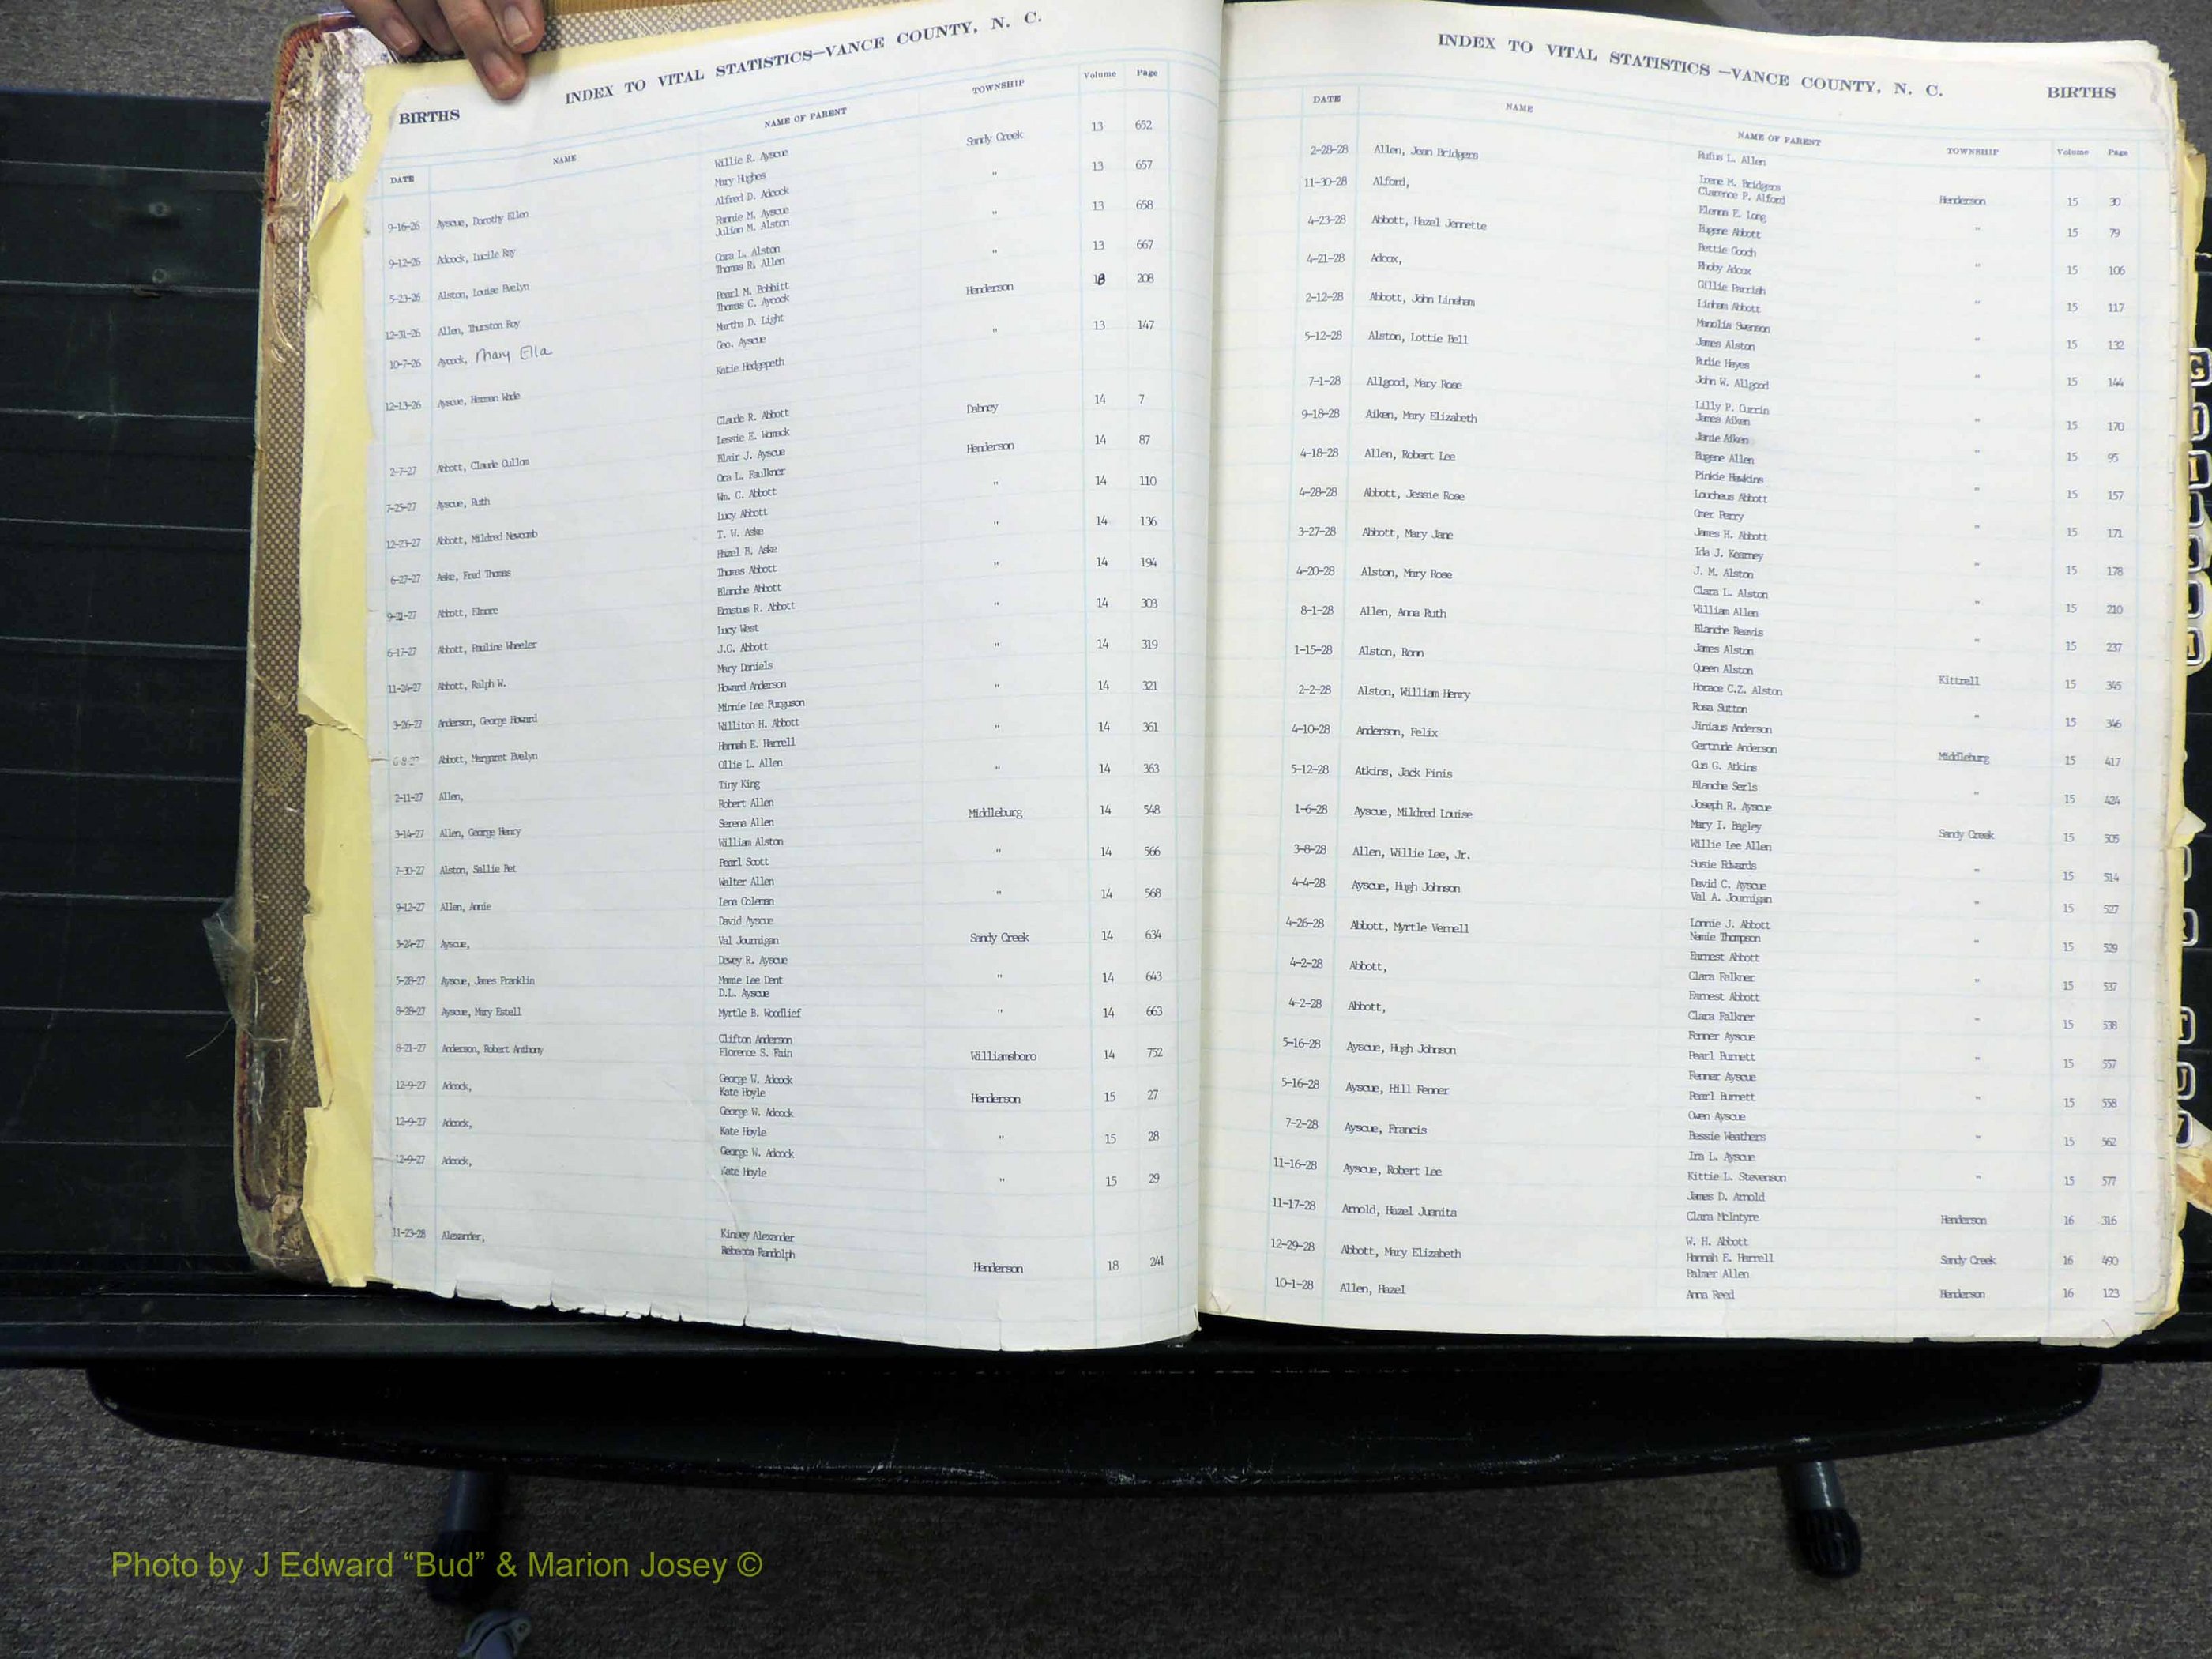 INDEX TO VITAL STATISTICS—VANCE COUNTY, N. C.
BIRTHS
DATE NAME NAME OF PARENT TOWNSHIP Volume Page
9-16-26 Ayscue, Dorothy Ellen Willie R. Ayscue Sandy Creek 13 652
Mary Hughes
9-12-26 Adcock, Lucile Ray Alfred D. Adcock " 13 657
Fannie M. Ayscue
5-23-26 Alston, Louise Evelyn Julian M. Alston " 13 658
Cora L. Alston
12-31-26 Allen, Thurston Roy Thomas R. Allen " 13 667
Pearl M. Bobbitt
10-7-26 Aycock, Mary Ella Thomas C. Aycock Henderson 208
Martha D. Light
12-13-26 Ayscue, Herman Wade Geo. Ayscue " 13 147
Katie Hedgepeth
2-7-27 Abbott, Claude Cullom Claude R. Abbott Dabney 14 7
Lessie E. Womack
7-25-27 Ayscue, Ruth Blair J. Ayscue Henderson 14 87
Ora L. Faulkner
12-23-27 Abbott, Mildred Newcomb Wm. C. Abbott " 14 110
Lucy Abbott
6-27-27 Aske, Fred Thomas T. W. Aske " 14 136
Hazel B. Aske
9-21-27 Abbott, Elnore Thomas Abbott " 14 194
Blanche Abbott
6-17-27 Abbott, Pauline Wheeler Erastus R. Abbott " 14 303
Lucy West
11-24-27 Abbott, Ralph W. J.C. Abbott " 14 319
Mary Daniels
3-26-27 Anderson, George Howard Howard Anderson " 14 321
Minnie Lee Furguson
6-8-27 Abbott, Margaret Evelyn Williton H. Abbott " 14 361
Hannah E. Harrell
2-11-27 Allen, Ollie L. Allen " 14 363
Tiny King
3-14-27 Allen, George Henry Robert Allen Middleburg 14 548
Serena Allen
7-30-27 Alston, Sallie Pet William Alston " 14 566
Pearl Scott
9-12-27 Allen, Annie Walter Allen " 14 568
Lena Coleman
3-24-27 Ayscue, David Ayscue Sandy Creek 14 634
Val Journigan
5-28-27 Ayscue, James Franklin Dewey R. Ayscue " 14 643
Mamie Lee Dent
8-28-27 Ayscue, Mary Estell D.L. Ayscue " 14 663
Myrtle B. Woodlief
8-21-27 Anderson, Robert Anthony Clifton Anderson Williamsboro 14 752
Florence S. Fain
12-9-27 Adcock, George W. Adcock Henderson 15 27
Kate Hoyle
12-9-27 Adcock, George W. Adcock " 15 28
Kate Hoyle
12-9-27 Adcock, George W. Adcock " 15 29
Kate Hoyle
11-23-28 Alexander, Kinsey Alexander Henderson 18 241
Rebecca Randolph
INDEX TO VITAL STATISTICS —VANCE COUNTY, N. C.
BIRTHS
DATE NAME NAME OF PARENT TOWNSHIP Volume Page
2-28-28 Allen, Jean Bridgers Rufus L. Allen Henderson 15 30
Irene M. Bridgers
11-30-28 Alford, Clarence P. Alford " 15 79
Elenna E. Long
4-23-28 Abbott, Hazel Jennette Eugene Abbott " 15 106
Bettie Gooch
4-21-28 Adcox, Rhoby Adcox " 15 117
Gillie Parrish
2-12-28 Abbott, John Lineham Linham Abbott " 15 132
Manolia Swenson
5-12-28 Alston, Lottie Bell James Alston " 15 144
Rudie Hayes
7-1-28 Allgood, Mary Rose John W. Allgood " 15 170
Lilly P. Currin
9-18-28 Aiken, Mary Elizabeth James Aiken " 15 95
Janie Aiken
4-18-28 Allen, Robert Lee Eugene Allen " 15 157
Pinkie Hawkins
4-28-28 Abbott, Jessie Rose Loucheus Abbott " 15 171
Omer Perry
3-27-28 Abbott, Mary Jane James H. Abbott " 15 178
Ida J. Kearney
4-20-28 Alston, Mary Rose J. M. Alston " 15 210
Clara L. Alston
8-1-28 Allen, Anna Ruth William Allen " 15 237
Blanche Reavis
1-15-28 Alston, Ronn James Alston Kittrell 15 345
Queen Alston
2-2-28 Alston, William Henry Horace C.Z. Alston " 15 346
Rosa Sutton
4-10-28 Anderson, Felix Jiniaus Anderson Middleburg 15 417
Gertrude Anderson
5-12-28 Atkins, Jack Finis Gus G. Atkins " 15 424
Blanche Serls
1-6-28 Ayscue, Mildred Louise Joseph R. Ayscue Sandy Creek 15 505
Mary I. Bagley
3-8-28 Allen, Willie Lee, Jr. Willie Lee Allen " 15 514
Susie Edwards
4-4-28 Ayscue, Hugh Johnson David C. Ayscue " 15 527
Val A. Journigan
4-26-28 Abbott, Myrtle Vernell Lonnie J. Abbott " 15 529
Namie Thompson
4-2-28 Abbott, Earnest Abbott " 15 537
Clara Falkner
4-2-28 Abbott, Earnest Abbott " 15 538
Clara Falkner
5-16-28 Ayscue, Hugh Johnson Fenner Ayscue " 15 557
Pearl Burnett
5-16-28 Ayscue, Hill Fenner Fenner Ayscue " 15 558
Pearl Burnett
7-2-28 Ayscue, Francis Owen Ayscue " 15 562
Bessie Weathers
11-16-28 Ayscue, Robert Lee Ira L. Ayscue " 15 577
Kittie L. Stevenson
11-17-28 Arnold, Hazel Juanita James D. Arnold Henderson 16 316
Clara McIntyre
12-29-28 Abbott, Mary Elizabeth W. H. Abbott Sandy Creek 16 490
Hannah E. Harrell
10-1-28 Allen, Hazel Palmer Allen Henderson 16 123
Anna Reed
Photo by J Edward “Bud” & Marion Josey ©